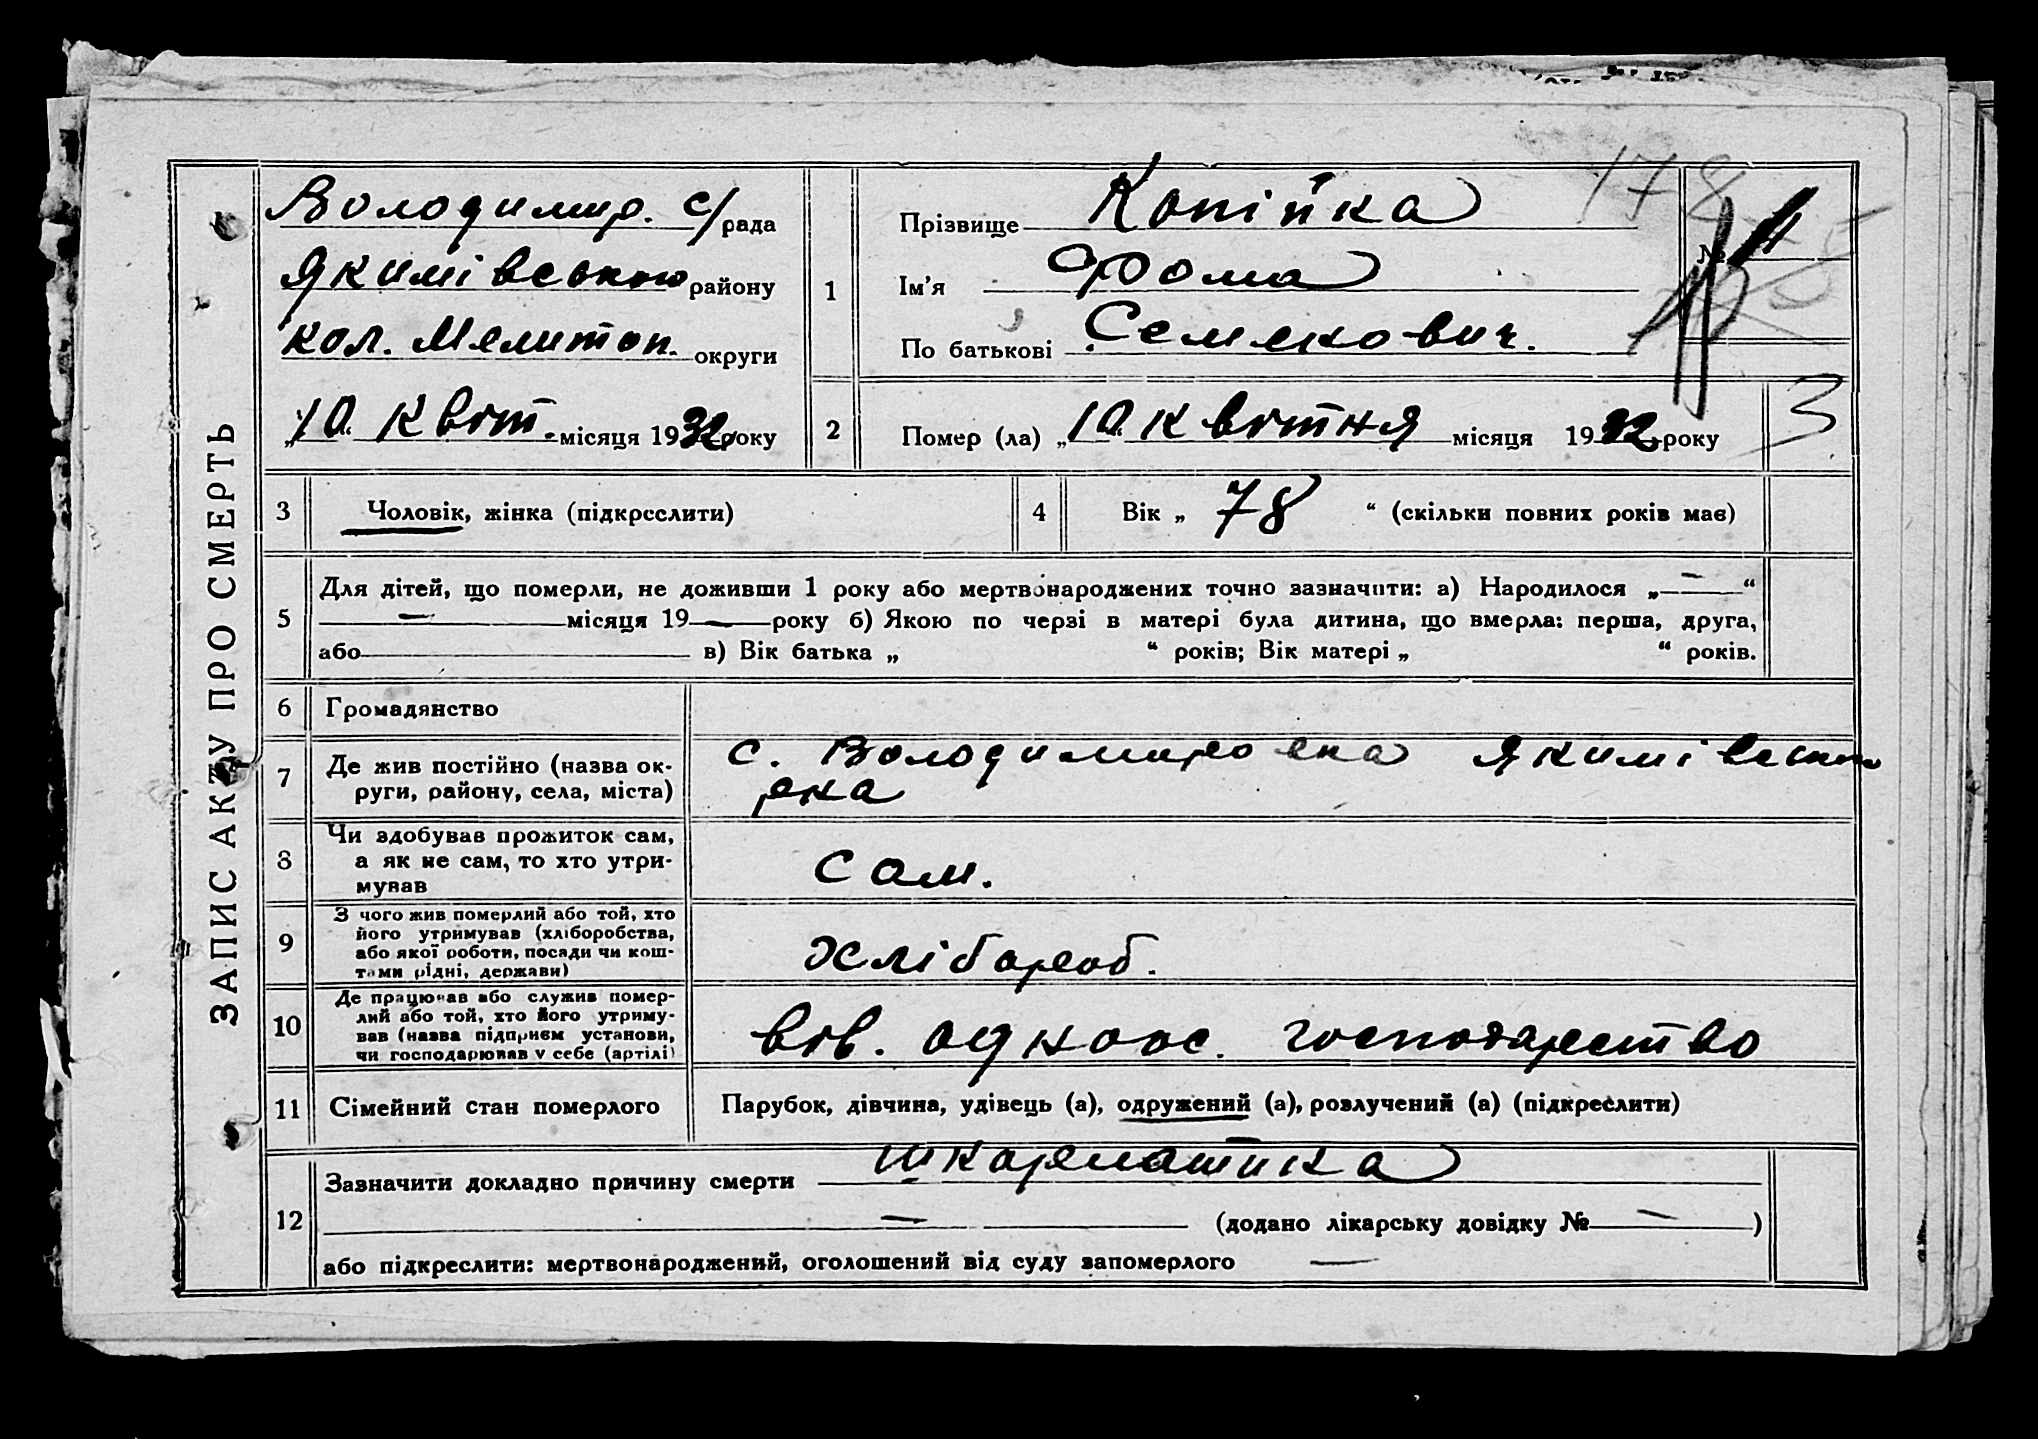 ЗАПИС АКТУ ПРО СМЕРТЬ
Володимир. с/рада
Якимівського району
кол. Мелитоп. округи
„10“ квіт. місяця 1932 року
1
Прізвище Копійка
Ім'я Фома
По батькові Семенович.
178
№
2
Помер (ла) „10“ квітня місяця 1932 року
3
3
Чоловік, жінка (підкреслити)
4
Вік „ 78 “ (скільки повних років має)
5
Для дітей, що померли, не доживши 1 року або мертвонароджених точно зазначити: а) Народилося „—“
— місяця 19— року б) Якою по черзі в матері була дитина, що вмерла: перша, друга,
або в) Вік батька „ “ років; Вік матері „ “ років.
6
Громадянство
7
Де жив постійно (назва ок-
руги, району, села, міста)
с. Володимировка Якимівського
р-на
8
Чи здобував прожиток сам,
а як не сам, то хто утри-
мував
сам.
9
З чого жив померлий або той, хто
його утримував (хліборобства,
або якої роботи, посади чи кош-
тами рідні, держави)
хлібороб.
10
Де працював або служив помер-
лий або той, хто його утриму-
вав (назва підприєм установи,
чи господарював у себе (артілі)
одноос. господарство
11
Сімейний стан померлого
Парубок, дівчина, удівець (а), одружений (а), розлучений (а) (підкреслити)
12
Зазначити докладно причину смерти шкарлатина
— (додано лікарську довідку № — )
або підкреслити: мертвонароджений, оголошений від суду запомерлого —